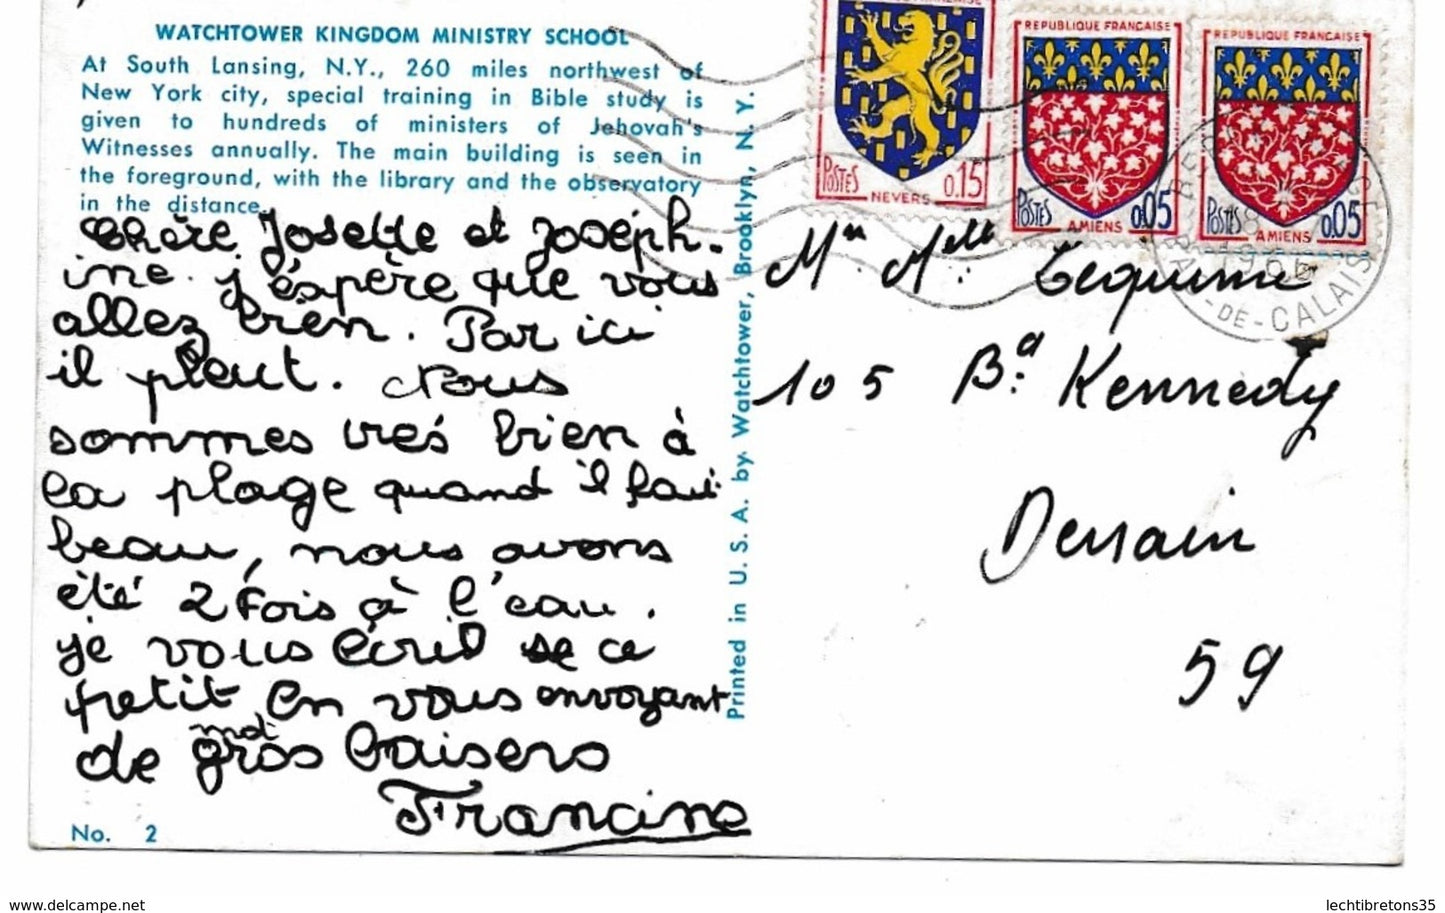 WATCHTOWER KINGDOM MINISTRY SCHOOL
At South Lansing, N.Y., 260 miles northwest of
New York city, special training in Bible study is
given to hundreds of ministers of Jehovah's
Witnesses annually. The main building is seen in
the foreground, with the library and the observatory
in the distance.
Chère Josette et Joséph.
ine. j'éspère que vous
allez bien. Par ici
il pleut. Nous
sommes tres bien à
la plage quand il fait
beau, nous avons
été 2 Fois à l'eau.
je vous écrit ce
petit mot En vous envoyant
de gros baisers
Francine
No. 2
Printed in U. S. A. by Watchtower, Brooklyn, N. Y.
REPUBLIQUE FRANÇAISE
POSTES 0.15
NEVERS
REPUBLIQUE FRANÇAISE
POSTES 0.05
AMIENS
REPUBLIQUE FRANÇAISE
POSTES 0.05
AMIENS
PAS-DE-CALAIS
Mr Melle
105 Bd Kennedy
Denain
59
delcampe.net
lechtibretons35